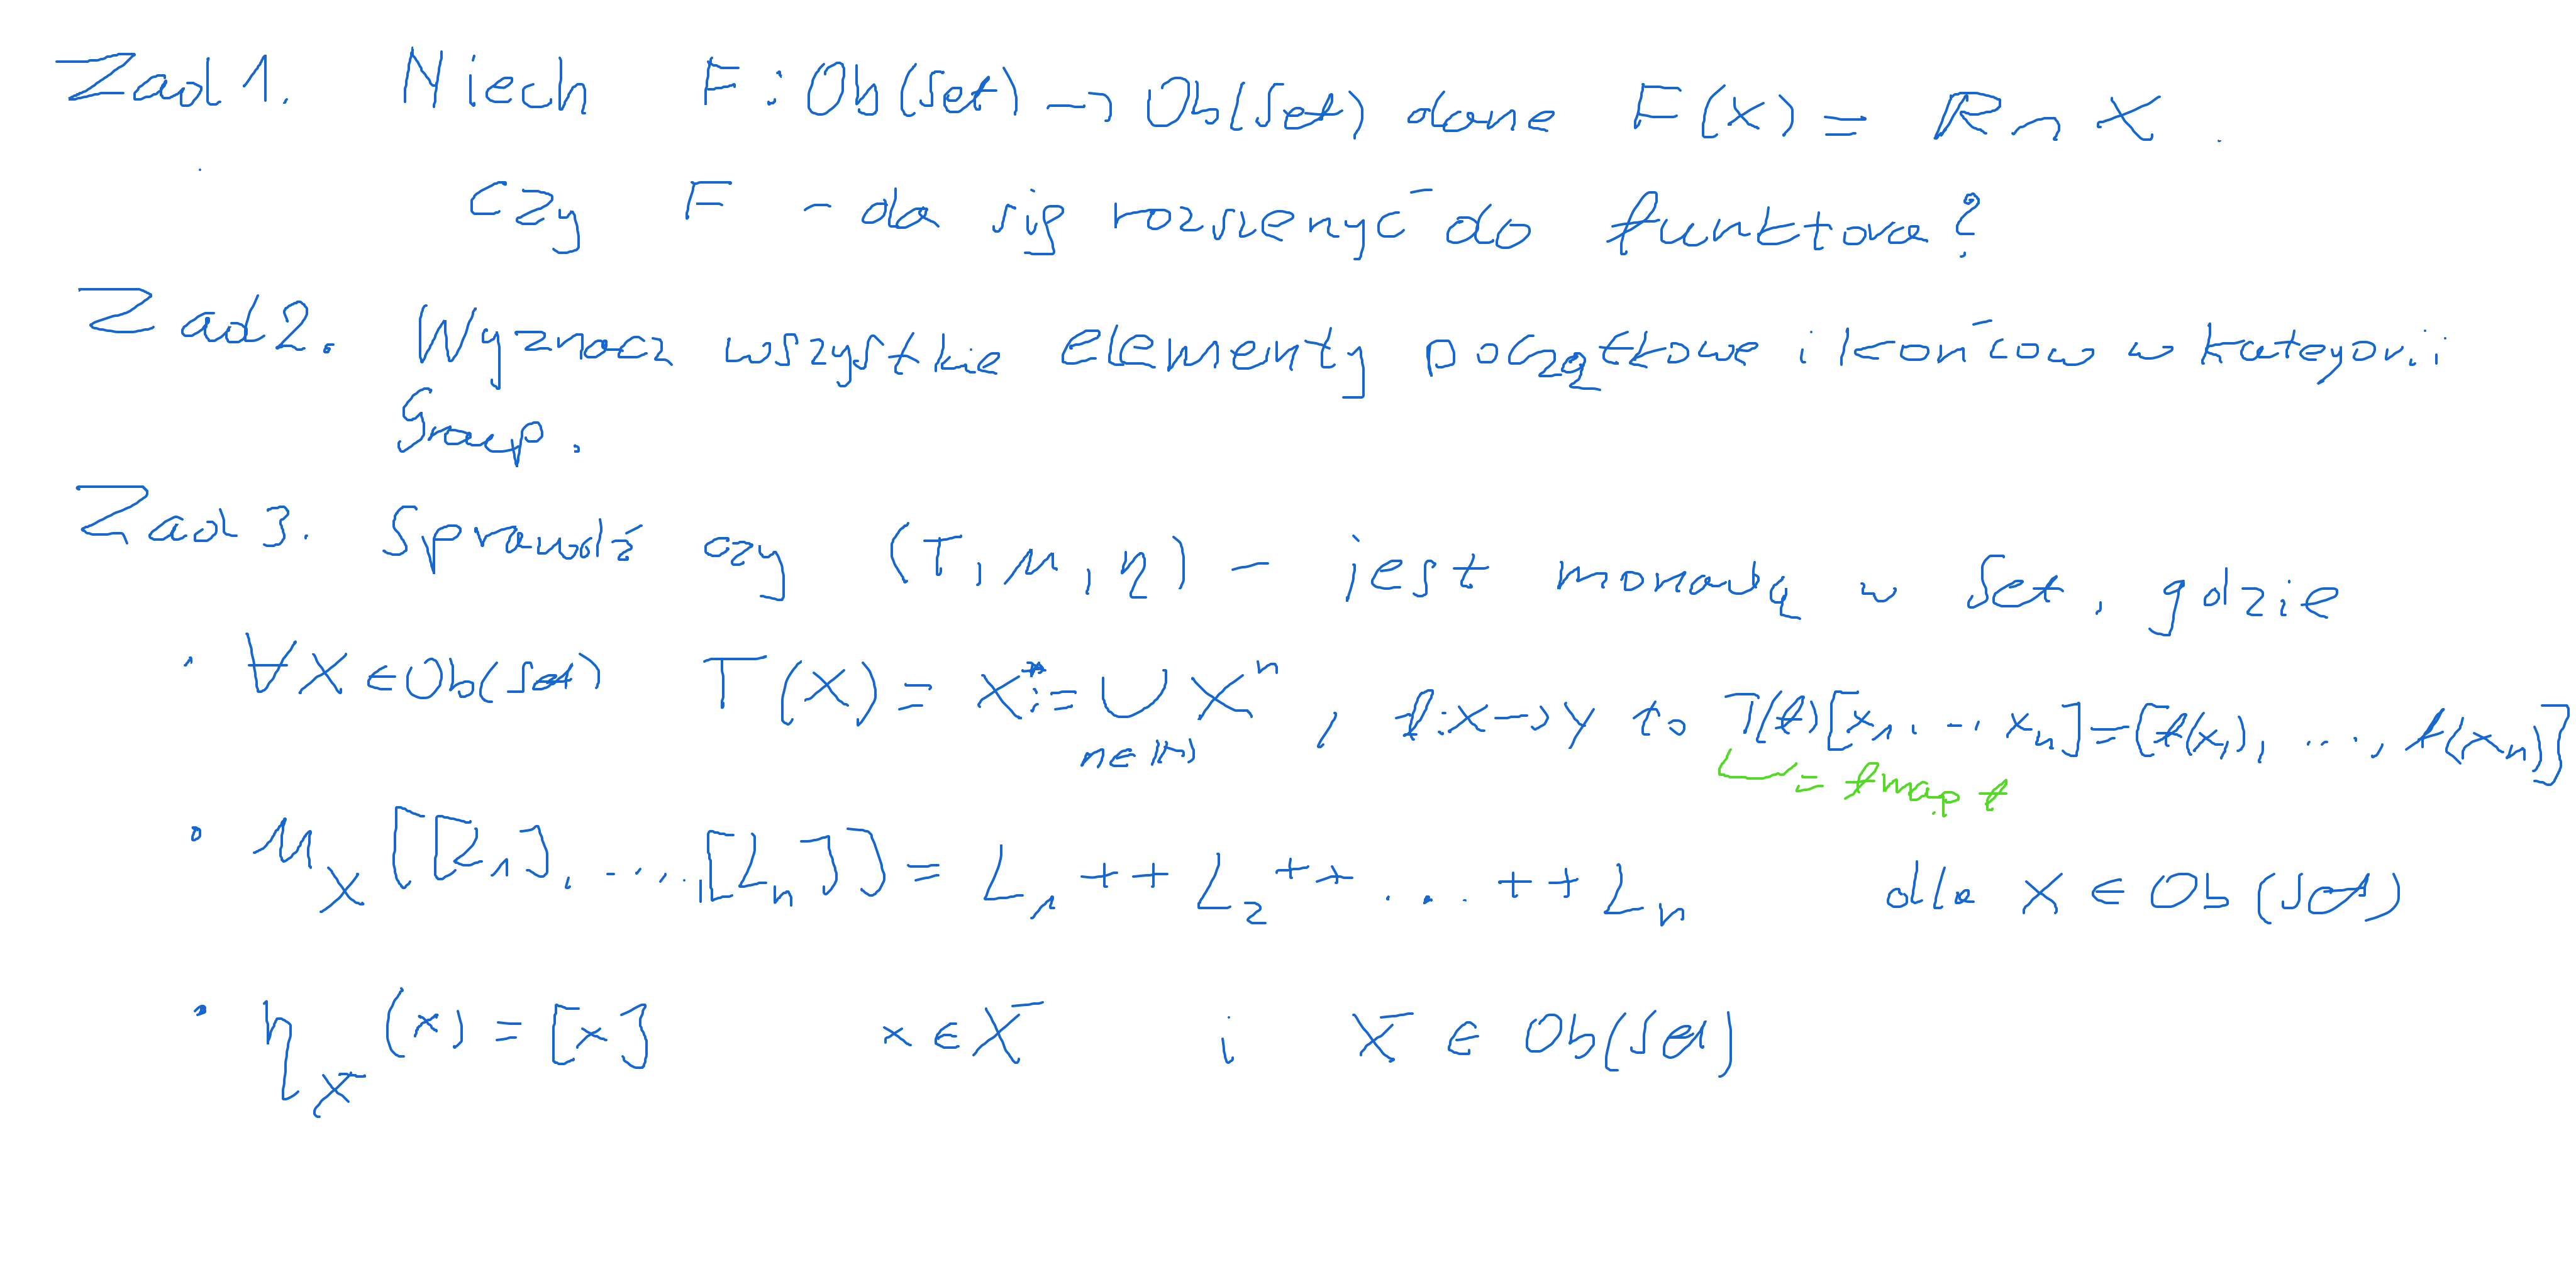 Zad 1. Niech F : Ob(Set) → Ob(Set) dane F(X) = R ∩ X .
Czy F - da się rozszerzyć do funktora?
Zad 2. Wyznacz wszystkie elementy początkowe i końcow w kategorii
Group.
Zad 3. Sprawdź czy (T, μ, η) - jest monadą w Set, gdzie
• ∀X ∈ Ob(Set) T(X) = X* := ∪ Xⁿ , f: X → Y to T(f)[x₁, ..., xₙ] = [f(x₁), ..., f(xₙ)]
n∈ℕ
= fmap f
• μ_X [[L₁], ..., [Lₙ]] = L₁ ++ L₂ ++ ... ++ Lₙ dla X ∈ Ob(Set)
• η_X (x) = [x] x ∈ X i X ∈ Ob(Set)